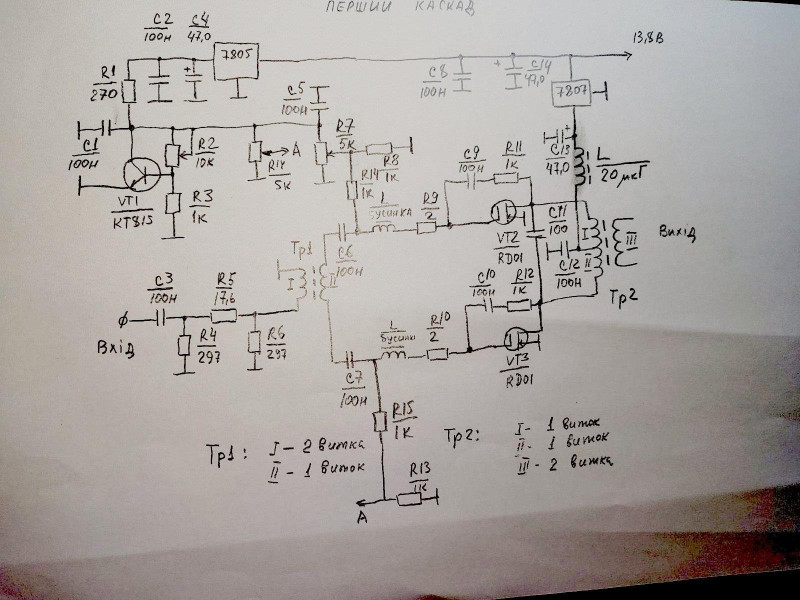 ПЕРШИЙ КАСКАД
C2
100н
C4
47,0
7805
13,8В
R1
270
+
C5
100н
C8
100н
+
C14
47,0
7807
C1
100н
R2
10к
A
R14
5к
R7
5к
R8
1к
R14
1к
C9
100н
R11
1к
+
C13
47,0
L
20мкГ
VT1
КТ815
R3
1к
L
бусинка
R9
2
VT2
RD01
C11
100
I
II
III
Вихід
Тр1
C6
100н
I
II
C10
100н
R12
1к
C12
100н
Тр2
C3
100н
R5
17,6
Вхід
R4
297
R6
297
C7
100н
L
бусинка
R10
2
VT3
RD01
R15
1к
Тр1:
I - 2 витка
II - 1 виток
Тр2:
I - 1 виток
II - 1 виток
III - 2 витка
R13
1к
A